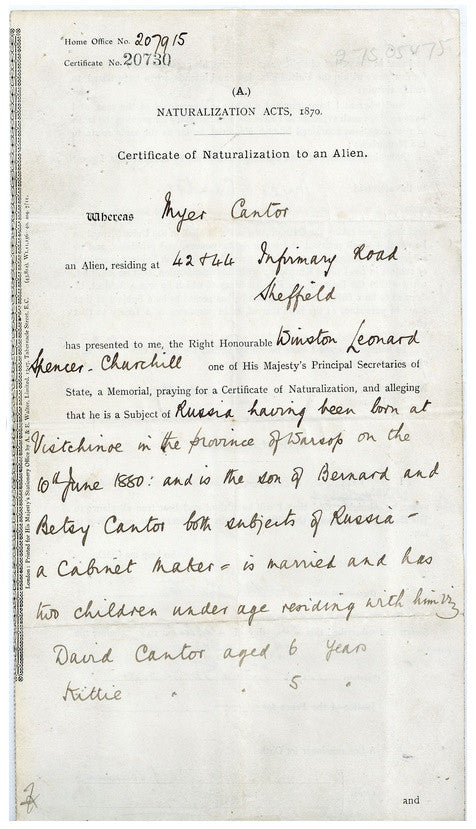 Home Office No. 207915
Certificate No. 20730
275,05475
(A.)
NATURALIZATION ACTS, 1870.
Certificate of Naturalization to an Alien.
Whereas Myer Cantor
an Alien, residing at 42 & 44 Infirmary Road
Sheffield
has presented to me, the Right Honourable Winston Leonard
Spencer-Churchill one of His Majesty's Principal Secretaries of
State, a Memorial, praying for a Certificate of Naturalization, and alleging
that he is a Subject of Russia having been born at
Vistchinoe in the province of Warsop on the
10th June 1880: and is the son of Bernard and
Betsy Cantor both subjects of Russia -
a Cabinet Maker = is married and has
two children under age residing with him viz
David Cantor aged 6 years
Kittie " " 5 "
and
London: Printed for His Majesty's Stationery Office by A. & E. Walter, Limited, Tabernacle Street, E.C.